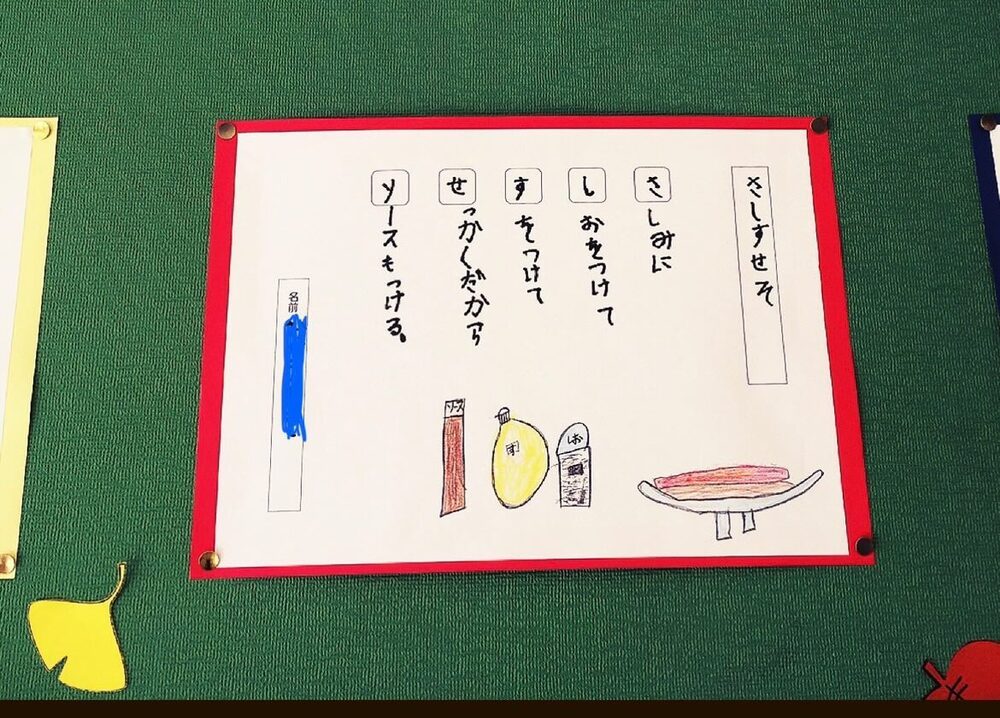 さしすせそ
さしみに
しおをつけて
すをつけて
せっかくだから
ソースもつける。
名前
ソース
す
しお